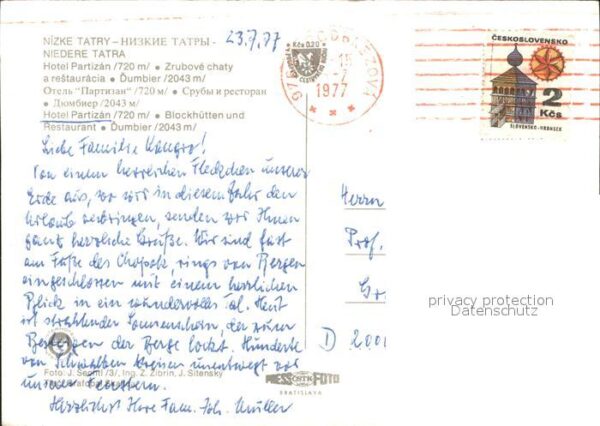 NÍZKE TATRY – НИЗКИЕ ТАТРЫ -
NIEDERE TATRA
Hotel Partizán /720 m/ • Zrubové chaty
a reštaurácia • Ďumbier /2043 m/
Отель "Партизан" /720 м/ • Срубы и ресторан
• Дюмбиер /2043 m/
Hotel Partizán /720 m/ • Blockhütten und
Restaurant • Ďumbier /2043 m/
23.7.77
Kčs 0,20
15
1977
ČESKOSLOVENSKO
2
Kčs
SLOVENSKO-HRONSEK
Liebe Familie
Von einem herrlichen Fleckchen unserer
Erde aus, wo wir in diesem Jahr den
Urlaub verbringen, senden wir Ihnen
ganz herzliche Grüße. Wir sind fast
am Fuße des Chopok, rings von Bergen
eingeschlossen mit einem herrlichen
Blick in ein wundervolles Tal. Heut
ist strahlender Sonnenschein, der zum
Besteigen der Berge lockt. Hunderte
von Schwalben kreisen unentwegt vor
unseren Fenstern.
Herzlichst Ihre Fam. Joh. Müller
Herrn
Prof.
D 2001
privacy protection
Datenschutz
Foto: J. Sechtl /3/, Ing. Z. Zlorin, J. Sitenský
PRESSFOTO
BRATISLAVA